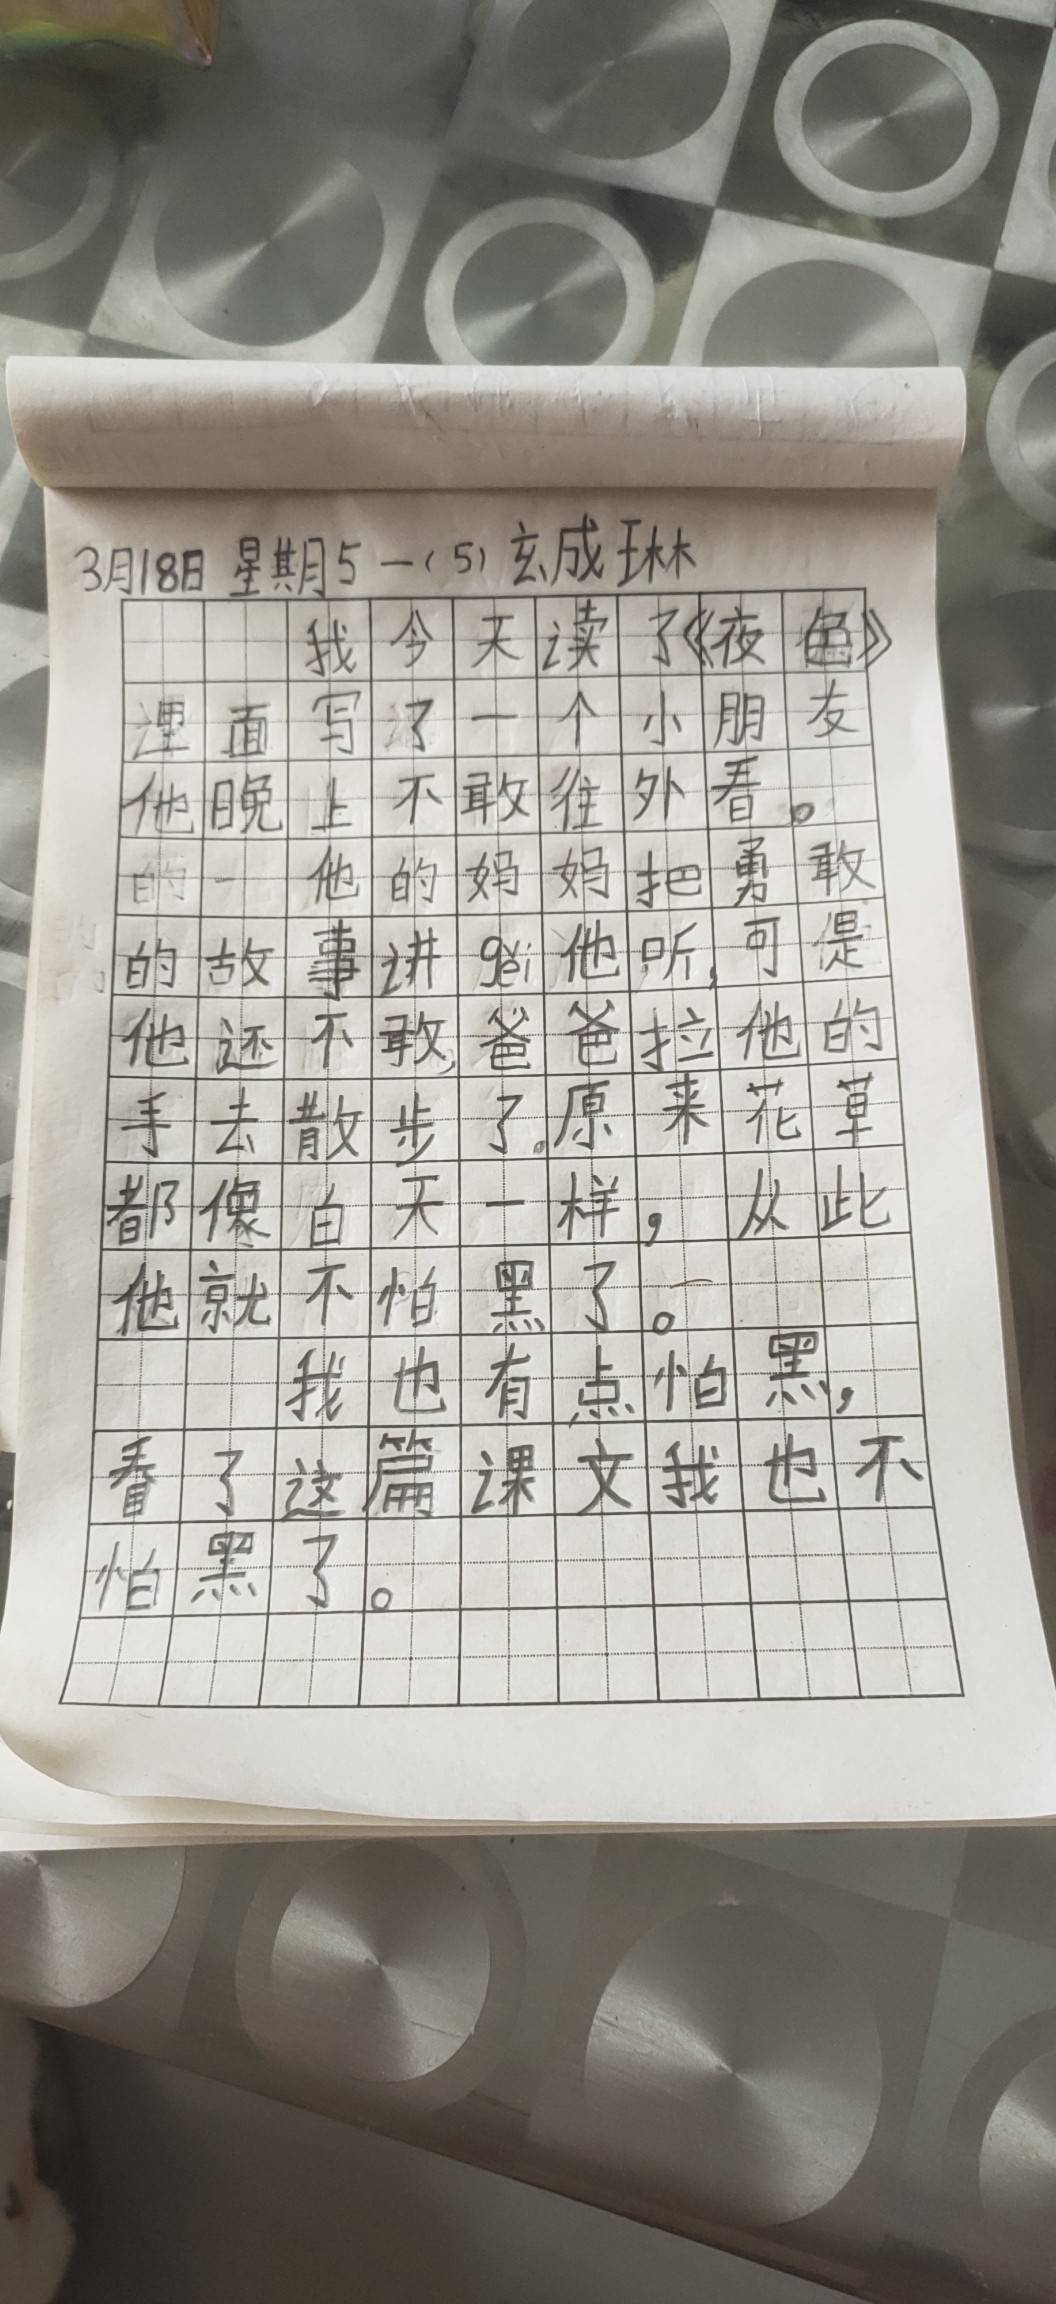 3月18日 星期5 一(5) 玄成琳
我今天读了《夜色》
里面写了一个小朋友
他晚上不敢往外看。
的一他的妈妈把勇敢
的故事讲gěi他听,可是
他还不敢,爸爸拉他的
手去散步了。原来花草
都像白天一样,从此
他就不怕黑了。
我也有点怕黑,
看了这篇课文我也不
怕黑了。